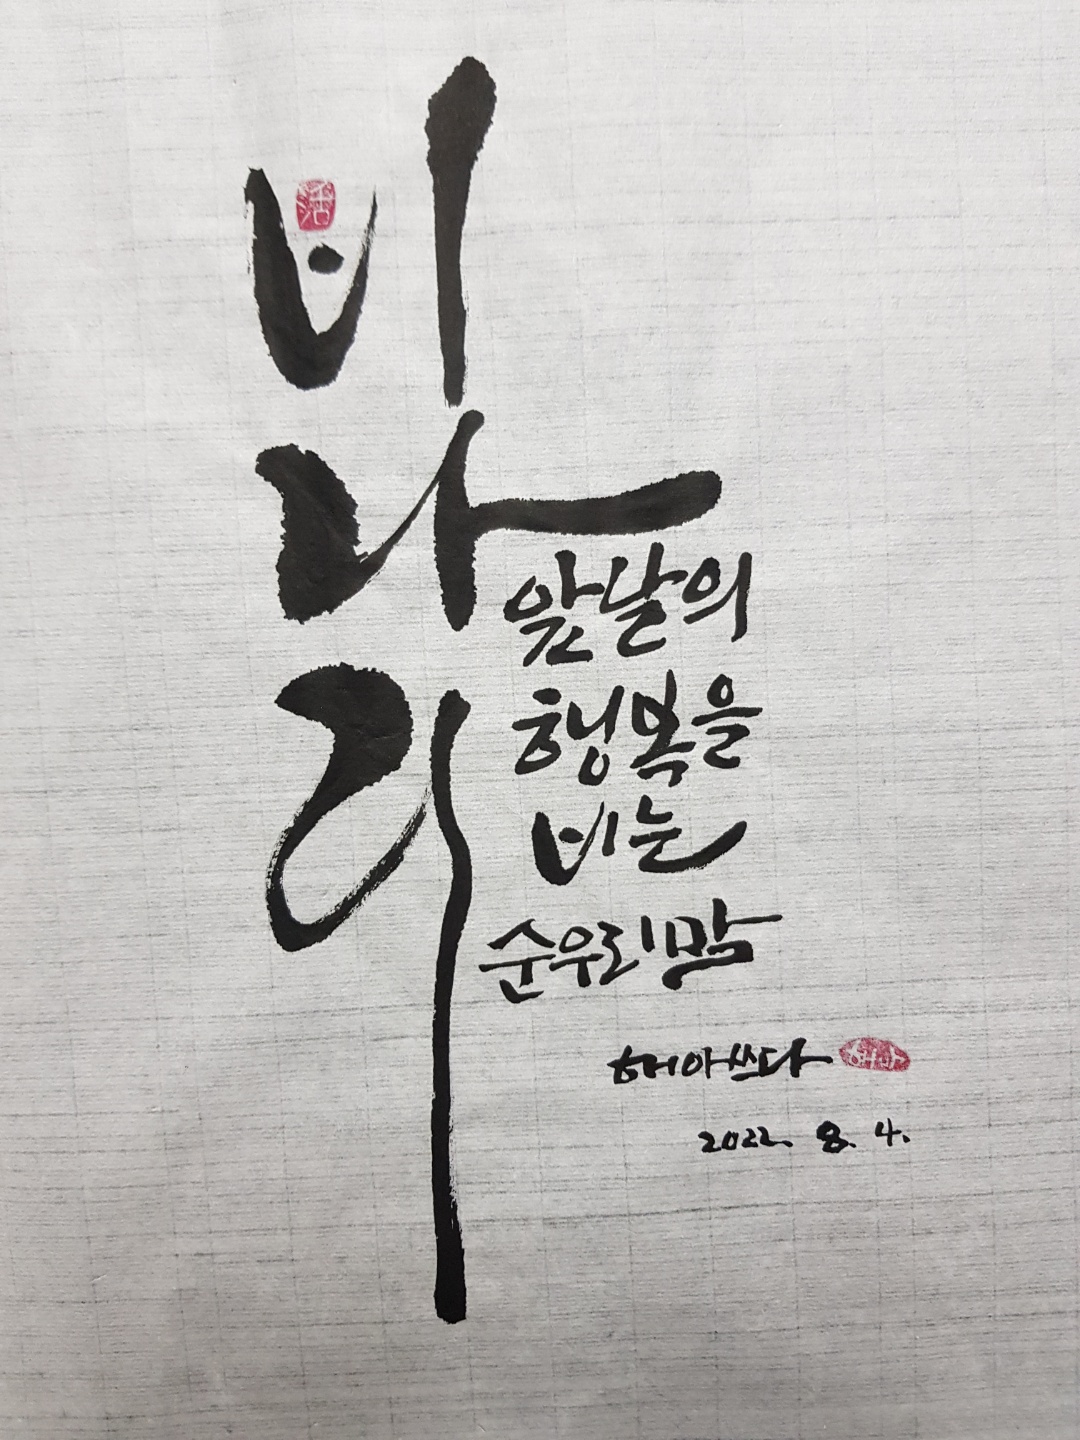 비
나
리
앞날의
행복을
비는
순우리말
해아쓰다 해아
2022. 8. 4.
活